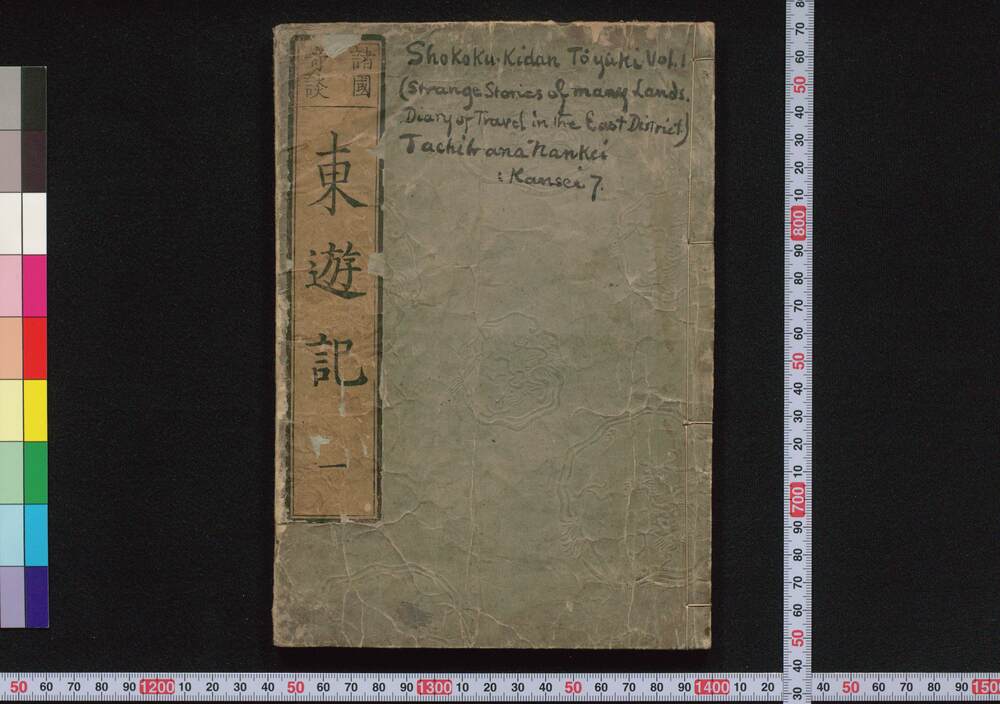 諸國
奇談
東遊記
一
Shokoku・Kidan Tōyūki Vol. 1
(Strange Stories of many Lands.
Diary of Travel in the East District)
Tachibana Nankei
: Kansei 7.
80 70 60 50 40 30 20 10 800 90 80 70 60 50 40 30 20 10 700 90 80 70 60 50 40 30
50 60 70 80 90 1200 10 20 30 40 50 60 70 80 90 1300 10 20 30 40 50 60 70 80 90 1400 10 20 40 50 60 70 80 90 1500